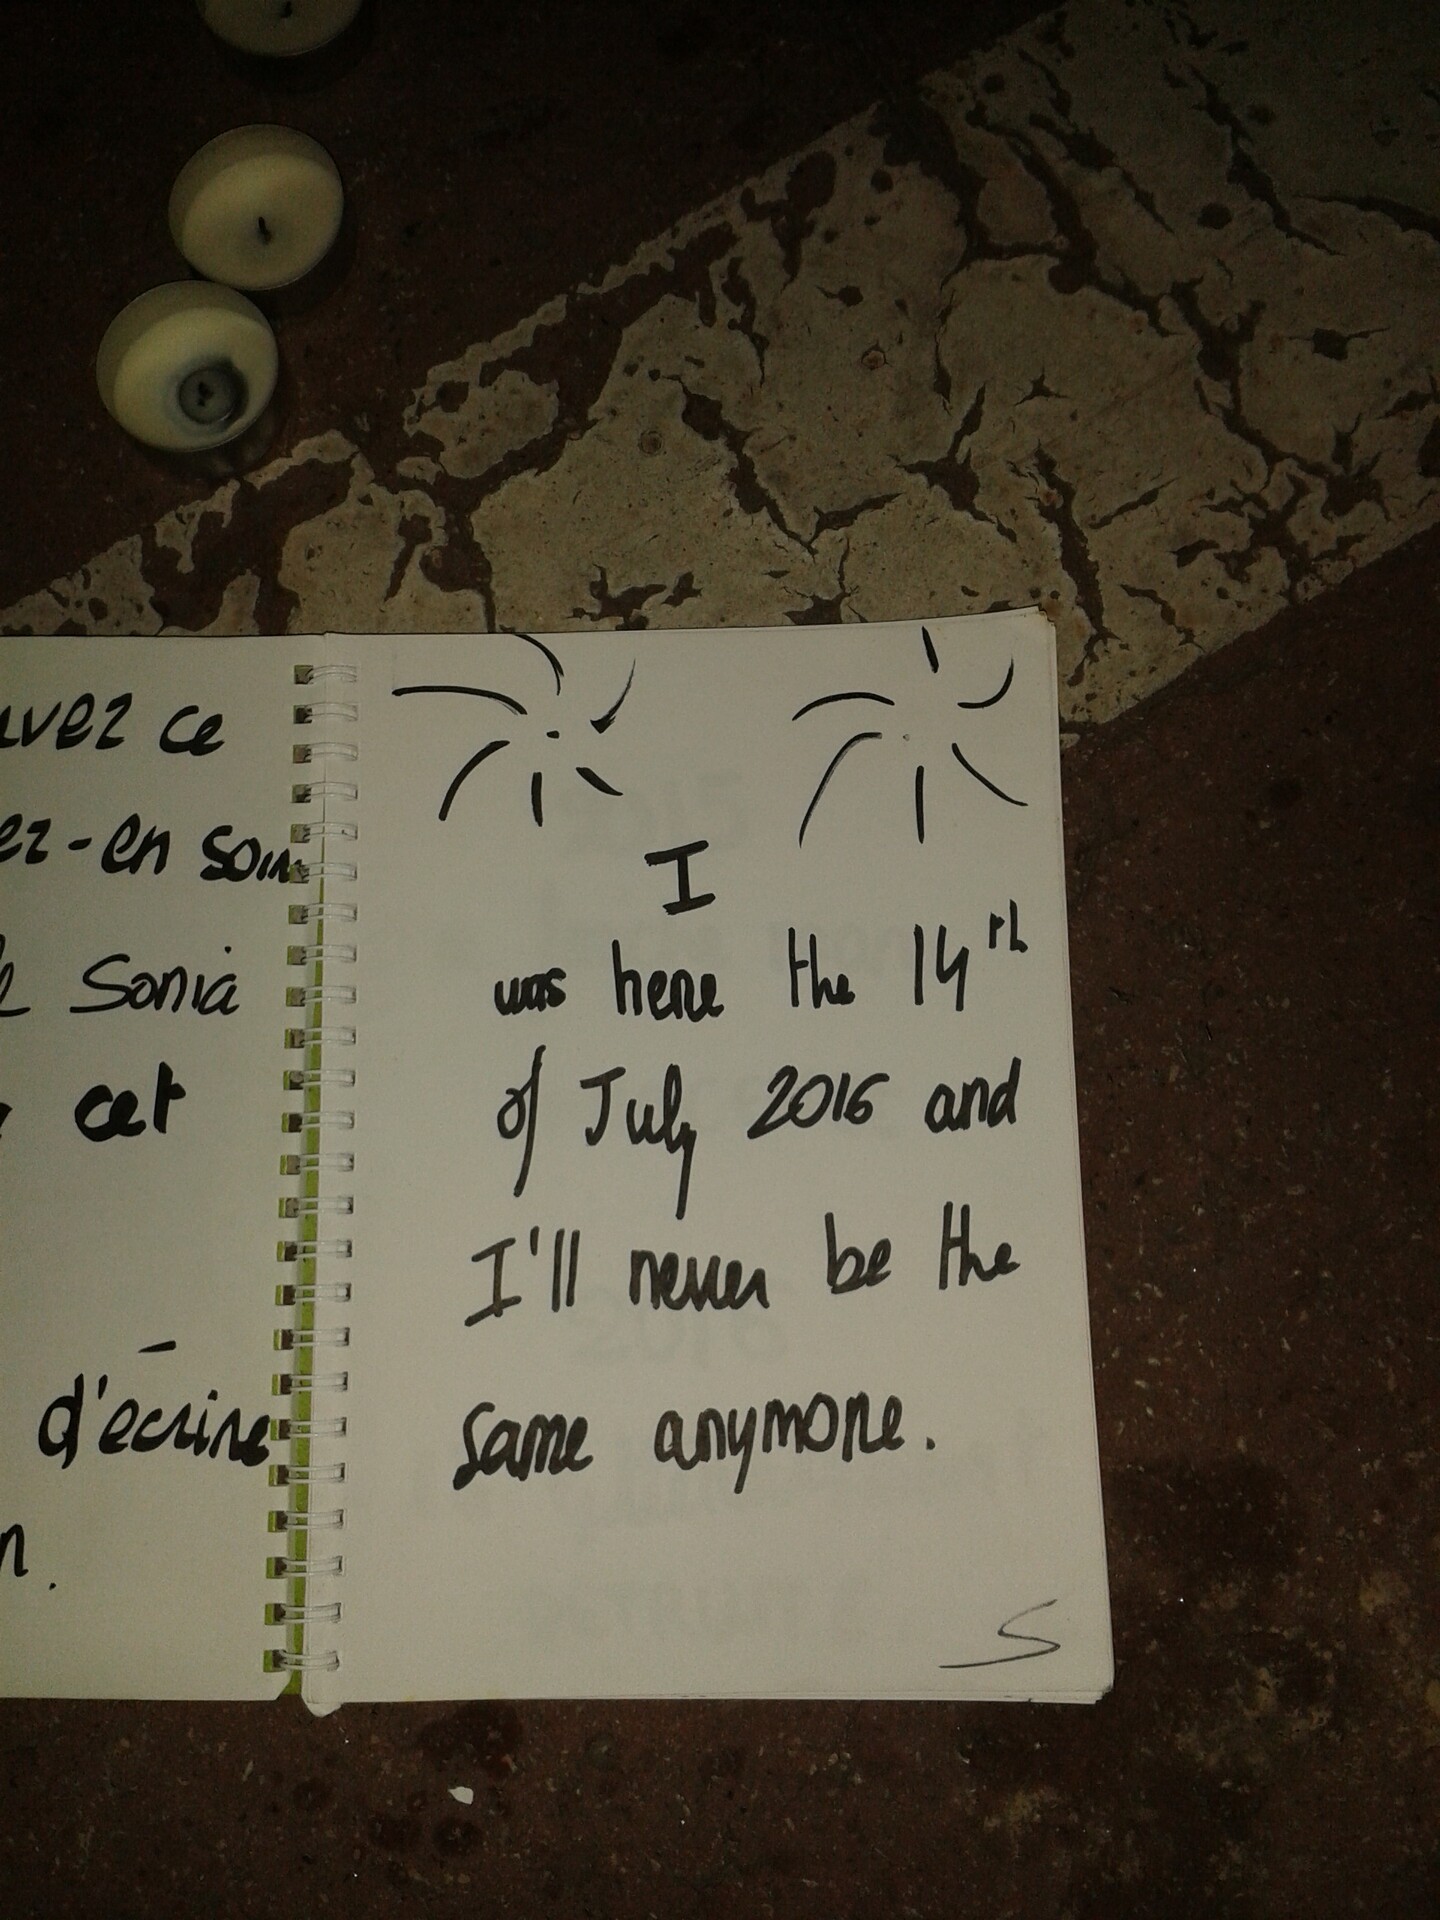 ce
-en soin
Sonia
cet
d'écrire
I
was here the 14th
of July 2016 and
I'll never be the
same anymore.
S